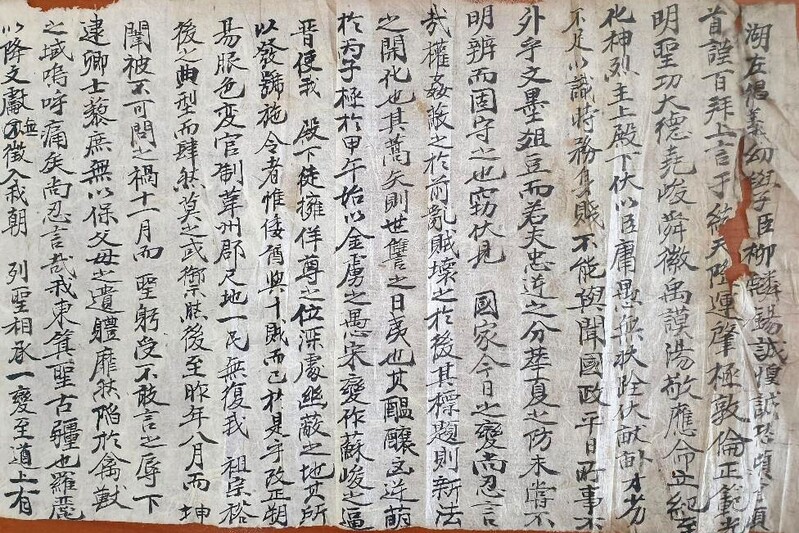 湖左倡義幼學臣柳麟錫誠惶誠恐頓首頓
首謹百拜上言于統天隆運肇極敦倫正範光
明聖功大德堯峻舜徽禹謨湯敬應命立紀至
化神烈主上殿下伏以臣庸愚無狀跧伏畎畝才劣
不足以識時務身賤不能與聞國政平日所事不
外乎文墨俎豆而若夫忠逆之分華夏之防未嘗不
明辨而固守之也竊伏見 國家今日之變尚忍言
哉權姦蔽之於前亂賊壞之於後其標題則新法
之開化也其蒿矢則世讐之日夷也其醞釀凶逆萌
於丙子極於甲午始以金虜之愚宋變作蘇峻之逼
晉使我 殿下徒擁佯尊之位深處幽蔽之地其所
以發號施令者惟倭酋與十賊而已於是乎改正朔
易服色變官制革州郡尺地一民無復我 祖宗裕
後之典型而肆然莫之或禦然後至昨年八月而 坤
闈被不可聞之禍十一月而 聖躬受不敢言之辱下
逮卿士黎庶無以保父母之遺體靡然陷於禽獸
之域嗚呼痛矣尚忍言哉我東箕聖古疆也羅麗
以降文獻無徵入我朝 列聖相承一變至道上有